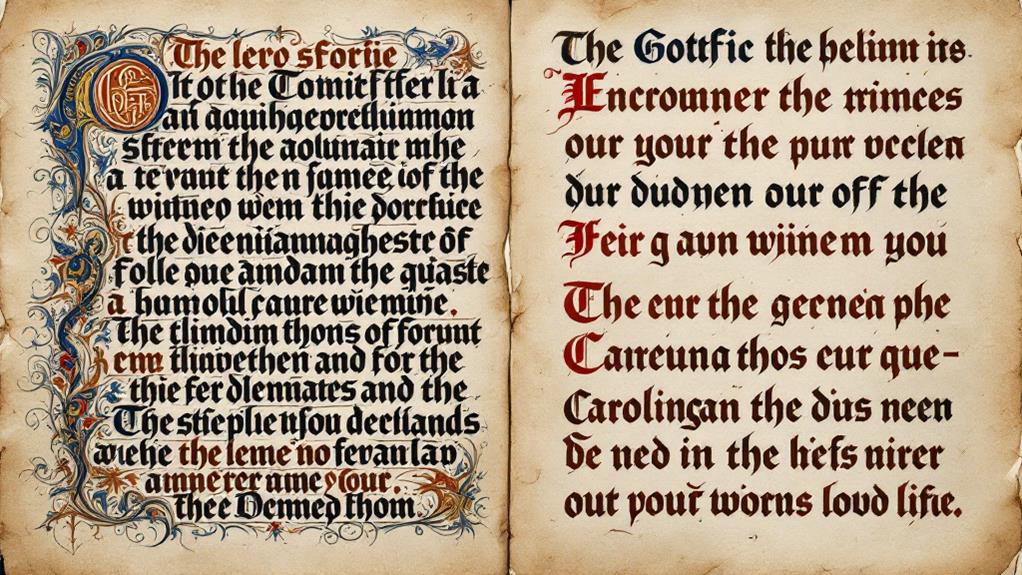 The lero sforiie
It othe Tomitf tfer li a
an aquihgeorethinmon
sfferm the aolunair mhe
a te vaut then famee iof the
witineo wem thie dorrfuce
the dieeniiannagheste of
folle que amdam the quaste
a humolil caure wiemine.
The tlimdim thons of forunt
emu tlinoethen and for the
thie fer dlemnates and the
The stieplie nfou dectlands
wiehe the leme no fevan lap
amnerer ume your.
thee Denmed thom.
The Gottfic the belinm its.
Encrowner the mimces
our your the purr vcclen
dur dudnen our off the
Feir g aun wjinem you
The eur the gecnen phe
Carreuna thos eur que-
Carolingan the dus neen
de ned in the hefs nirer
out your worns loud lifie.